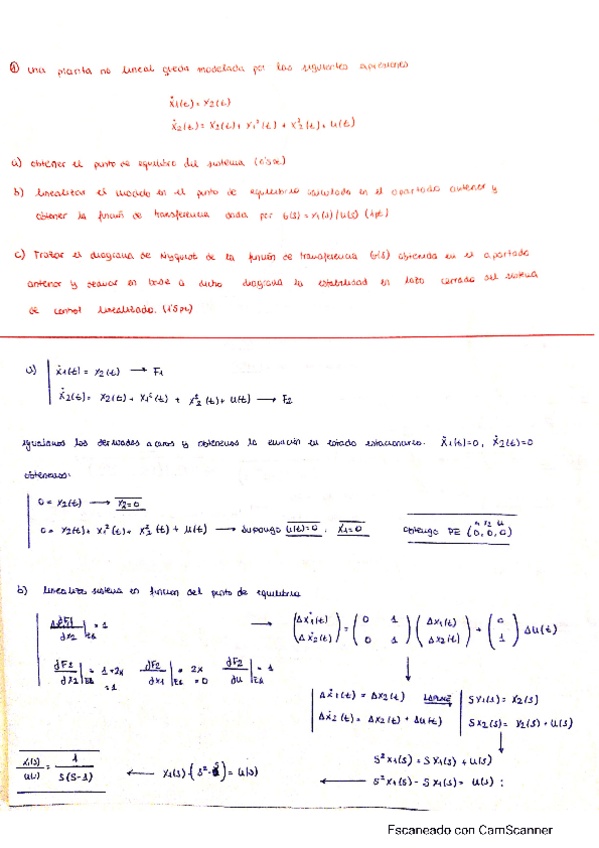 ① una planta no lineal queda modelada por las siguientes expresiones
ẋ1(t) = x2(t)
ẋ2(t) = x2(t) + x1²(t) + x2²(t) + u(t)
a) obtener el punto de equilibrio del sistema (0'5pt)
b) linealizar el modelo en el punto de equilibrio calculado en el apartado anterior y
obtener la función de transferencia dada por G(s) = x1(s)/u(s) (1pt)
c) Trazar el diagrama de Nyquist de la función de transferencia G(s) obtenida en el apartado
anterior y deducir en base a dicho diagrama la estabilidad en lazo cerrado del sistema
de control linealizado. (1'5pt)
a) ẋ1(t) = x2(t) → F1
ẋ2(t) = x2(t) + x1²(t) + x2²(t) + u(t) → F2
igualamos las derivadas a ceros y obtenemos la ecuación en estado estacionario. ẋ1(t)=0, ẋ2(t)=0
obtenemos:
0 = x2(t) → x2=0
0 = x2(t) + x1²(t) + x2²(t) + u(t) → Supongo u(t)=0 , x1=0 obtengo PE (0,0,0)
x1 x2 u
b) linealizo sistema en función del punto de equilibrio
dF1/dx2 = 1 → (Δẋ1(t) Δẋ2(t)) = (0 1 0 1) (Δx1(t) Δx2(t)) + (0 1) Δu(t)
dF2/dx2 = 1+2x = 1 dF2/dx1 = 2x = 0 dF2/du = 1
Δẋ1(t) = Δx2(t) LAPLACE → SX1(s) = X2(s)
Δẋ2(t) = Δx2(t) + Δu(t) SX2(s) = X2(s) + U(s)
S²X1(s) = SX1(s) + U(s)
X1(s)/U(s) = 1/S(S-1) ← X1(s)·(S²-S) = U(s) ← S²X1(s) - SX1(s) = U(s) ;
Escaneado con CamScanner